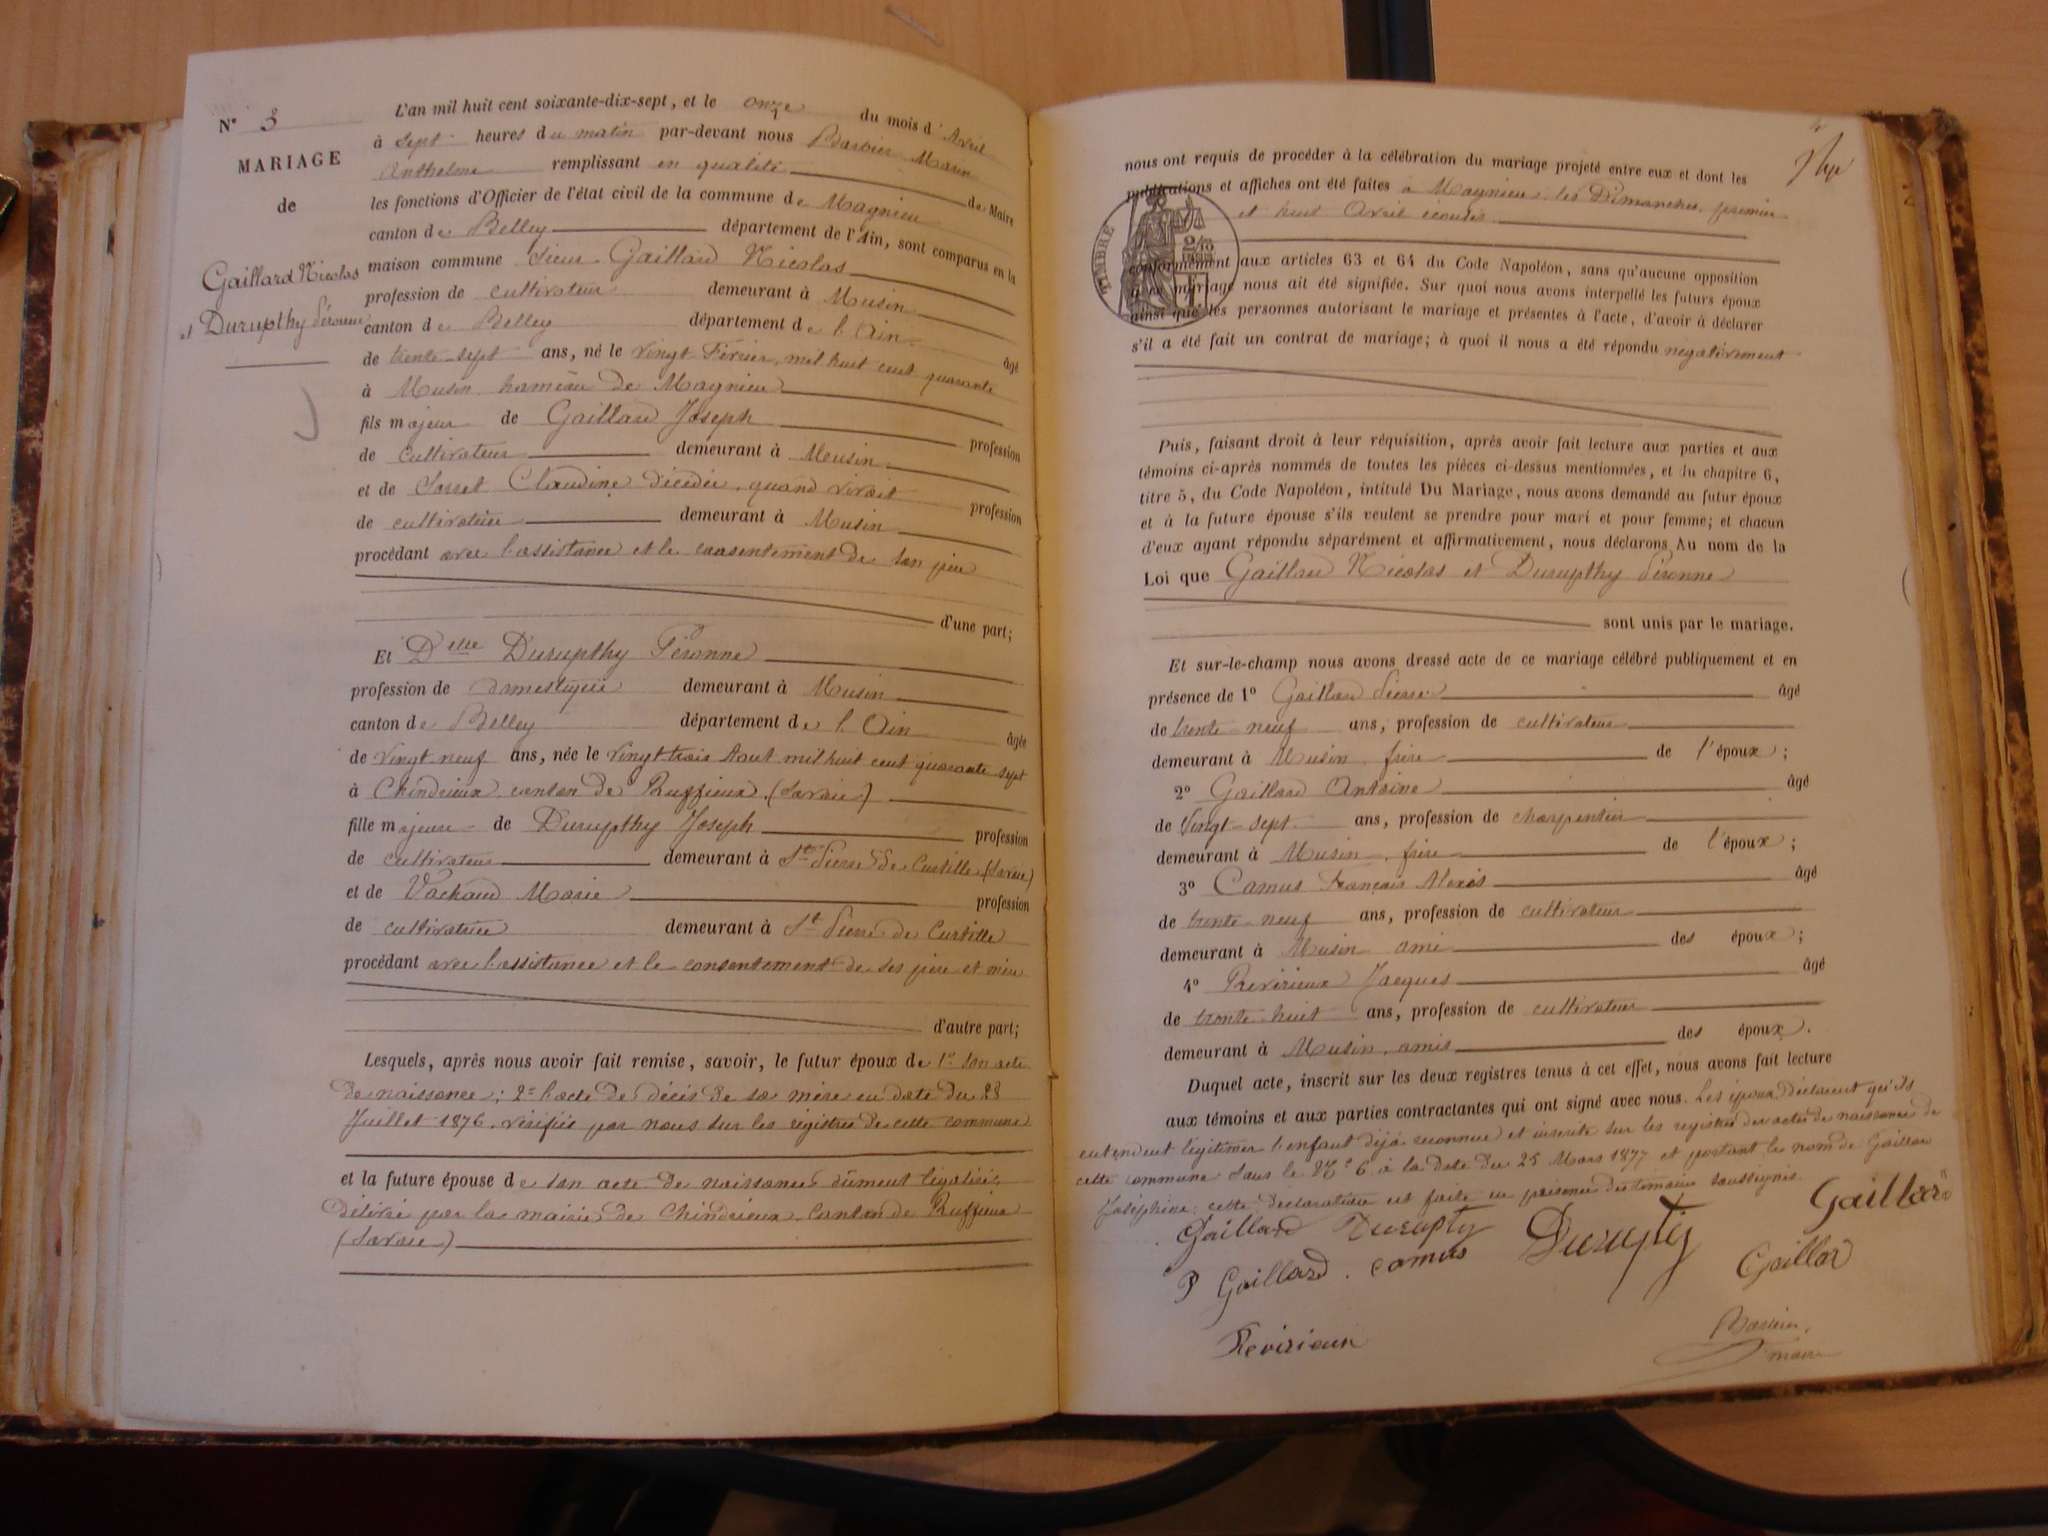 N° 3
MARIAGE
de
Gaillard Nicolas
et Durupthy Péronne
L'an mil huit cent soixante-dix-sept, et le onze du mois d'Avril
à sept heures du matin par-devant nous Barbier Marin
Anthelme remplissant en qualité de Maire
les fonctions d'Officier de l'état civil de la commune de Magnieu
canton de Belley département de l'Ain, sont comparus en la
maison commune Sieur Gaillard Nicolas
profession de cultivateur demeurant à Musin
canton de Belley département de l'Ain âgé
de trente-sept ans, né le vingt Février mil huit cent quarante
à Musin hameau de Magnieu
fils majeur de Gaillard Joseph profession
de cultivateur demeurant à Musin
et de Claudine décédée, quand vivait profession
de cultivatrice demeurant à Musin
procédant avec l'assistance et le consentement de son père
d'une part;
Et Delle Durupthy Péronne
profession de domestique demeurant à Musin
canton de Belley département de l'Ain âgée
de vingt neuf ans, née le vingt trois Aout mil huit cent quarante sept
à Chindrieux canton de Ruffieux (Savoie)
fille majeure de Durupthy Joseph profession
de cultivateur demeurant à St Pierre de Curtille (Savoie)
et de Vachaud Marie profession
de cultivatrice demeurant à St Pierre de Curtille
procédant avec l'assistance et le consentement de ses père et mère
d'autre part;
Lesquels, après nous avoir fait remise, savoir, le futur époux de 1° son acte
de naissance; 2° l'acte de décès de sa mère en date du 28
Juillet 1876, vérifiés par nous sur les registres de cette commune
et la future épouse de son acte de naissance dûment légalisé,
délivré par la mairie de Chindrieux, Canton de Ruffieux
(Savoie)
nous ont requis de procéder à la célébration du mariage projeté entre eux et dont les
publications et affiches ont été faites à Magnieu les Dimanches premier
et huit Avril écoulés
TIMBRE
conformément aux articles 63 et 64 du Code Napoléon, sans qu'aucune opposition
à ce mariage nous ait été signifiée. Sur quoi nous avons interpellé les futurs époux
ainsi que les personnes autorisant le mariage et présentes à l'acte, d'avoir à déclarer
s'il a été fait un contrat de mariage; à quoi il nous a été répondu négativement
Puis, faisant droit à leur réquisition, après avoir fait lecture aux parties et aux
témoins ci-après nommés de toutes les pièces ci-dessus mentionnées, et du chapitre 6,
titre 5, du Code Napoléon, intitulé Du Mariage, nous avons demandé au futur époux
et à la future épouse s'ils veulent se prendre pour mari et pour femme; et chacun
d'eux ayant répondu séparément et affirmativement, nous déclarons Au nom de la
Loi que Gaillard Nicolas et Durupthy Péronne
sont unis par le mariage.
Et sur-le-champ nous avons dressé acte de ce mariage célébré publiquement et en
présence de 1° Gaillard Pierre âgé
de trente neuf ans, profession de cultivateur
demeurant à Musin frère de l'époux;
2° Gaillard Antoine âgé
de vingt-sept ans, profession de charpentier
demeurant à Musin, frère de l'époux;
3° Camus François Alexis âgé
de trente-neuf ans, profession de cultivateur
demeurant à Musin ami des époux;
4° Revirieux Jacques âgé
de trente-huit ans, profession de cultivateur
demeurant à Musin, amis des époux.
Duquel acte, inscrit sur les deux registres tenus à cet effet, nous avons fait lecture
aux témoins et aux parties contractantes qui ont signé avec nous. Les époux déclarent qu'ils
entendent légitimer l'enfant déjà reconnue et inscrite sur les registres des actes de naissance de
cette commune sous le N° 6 à la date du 25 Mars 1877 et portant le nom de Gaillard
Joséphine; cette déclaration est faite en présence des témoins soussignés.
Gaillard Durupty Durupty Gaillard
P Gaillard camus Gaillar
Revirieux
Barbier,
maire